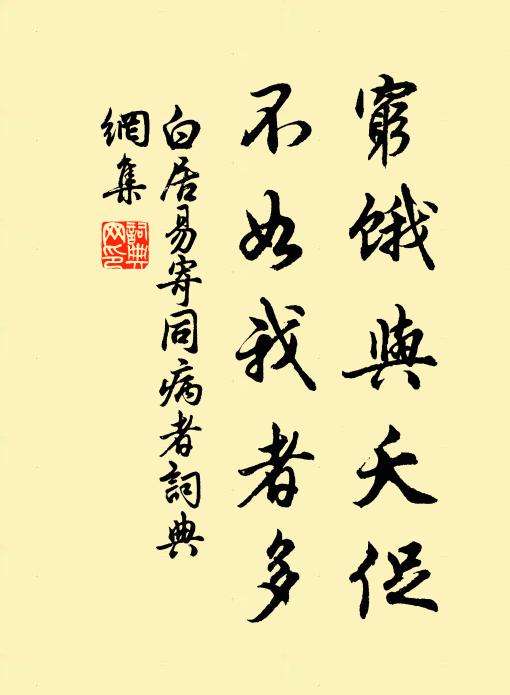 窮餓與夭促
不如我者多
白居易寄同病者詞典
網集
詞典
网印